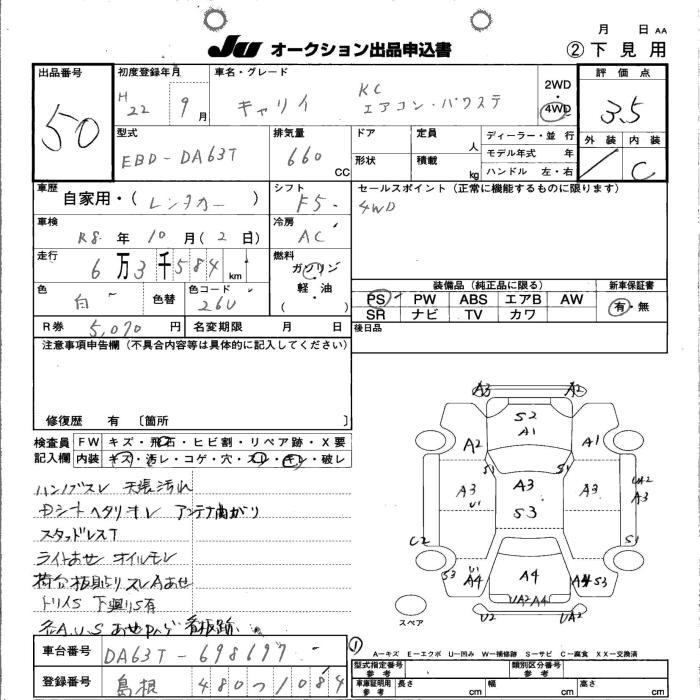 月 日 AA
JU オークション出品申込書 ②下見用
出品番号 50
初度登録年月 H22 9月
車名・グレード キャリイ KC エアコン・パワステ
2WD・4WD
評価点 3.5
外装 内装 C
型式 EBD-DA63T
排気量 660 CC
ドア 定員 人
形状 積載 kg
ディーラー・並行
モデル年式 年
ハンドル 左・右
車歴 自家用・(レンタカー)
シフト F5
セールスポイント(正常に機能するものに限ります)
4WD
車検 R8年10月(2日)
冷房 AC
走行 6万3千584km
燃料 ガソリン・軽・油 ( )
色 白 色替
色コード 26U
装備品(純正品に限る) 新車保証書
PS PW ABS エアB AW 有・無
SR ナビ TV カワ
R券 5,070円 名変期限 月 日
後日品
注意事項申告欄(不具合内容等は具体的に記入してください)
修復歴 有 〔箇所 〕
検査員記入欄
FW キズ・飛石・ヒビ割・リペア跡・X要
内装 キズ・汚レ・コゲ・穴・スレ・キレ・破レ
ハンドルスレ 天張汚れ
アンテナ曲がり
スタッドレスT
オイルモレ
下廻りS有
看板跡
A3 A2
S2
A1
A2 A1
S1 S1
A3 A3 A3 UA2 A3
U1
S3
U2 S1
U1
S3 A4 A4 A4 S3
UA2 A4
U2 UA2
スペア
①
A-キズ E-エクボ U-凹み W-補修跡 S-サビ C-腐食 XX-交換済
車台番号 DA63T-698697
登録番号 島根 480 つ 1084
型式指定番号 参考 類別区分番号 参考
車庫証明用 参考 長さ cm 幅 cm 高さ cm